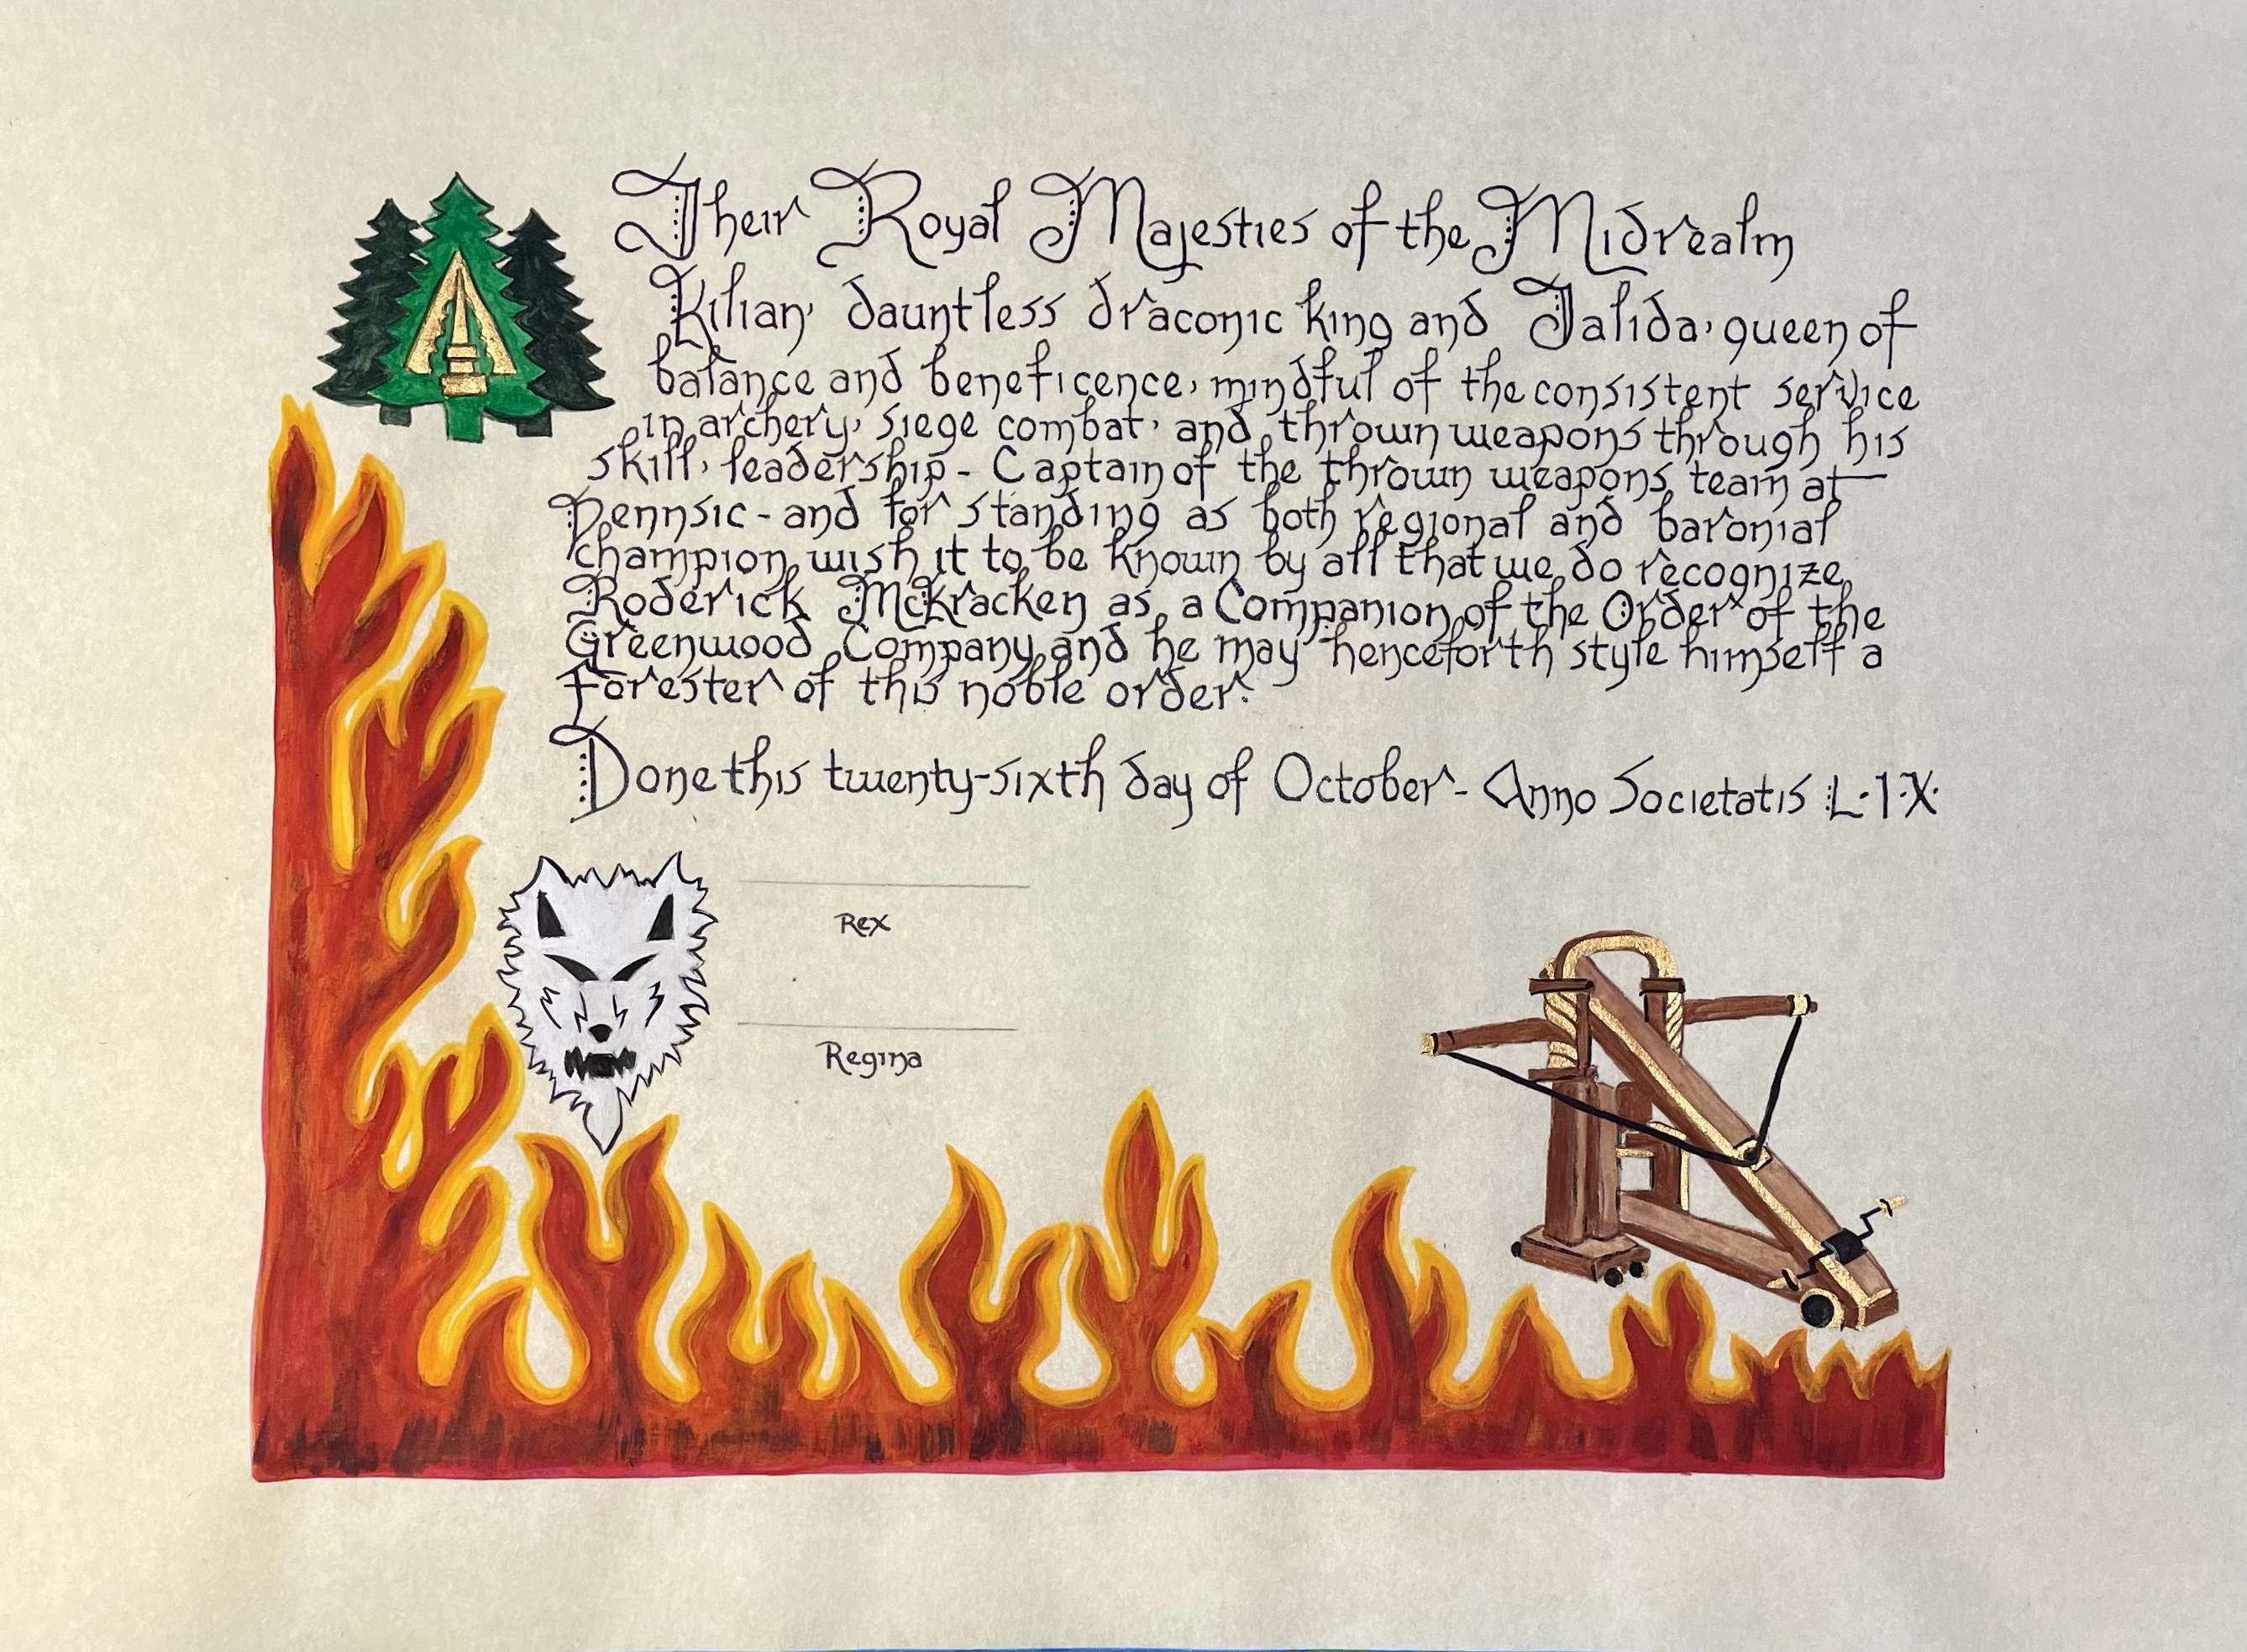 Their Royal Majesties of the Midrealm
Kilian, dauntless draconic king and Jalida, queen of
balance and beneficence, mindful of the consistent service
in archery, siege combat, and thrown weapons through his
skill, leadership - Captain of the thrown weapons team at
Pennsic - and for standing as both regional and baronial
champion wish it to be known by all that we do recognize
Roderick McKracken as a Companion of the Order of the
Greenwood Company and he may henceforth style himself a
Forester of this noble order.
Done this twenty-sixth day of October - Anno Societatis L·I·X·
Rex
Regina